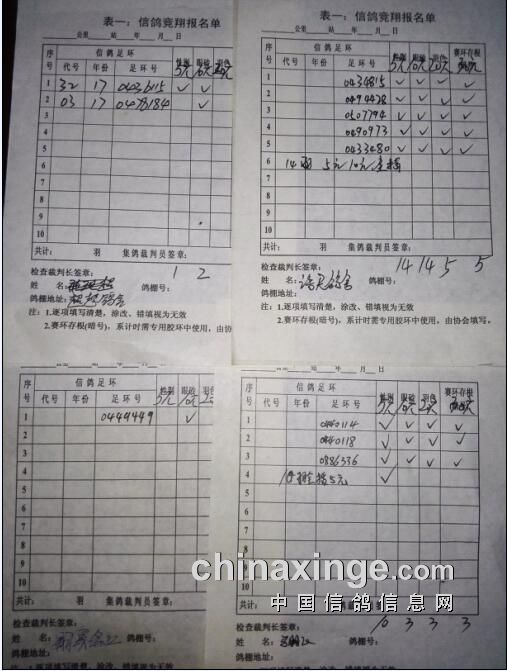 表一：信鸽竞翔报名单
公里 站 年 月 日
序号 信鸽足环
代号 年份 足环号 5元 10元
1 32 17 0403615 ✓ ✓
2 03 17 0478184 ✓
3
4
5
6
7
8
9
10
共计： 羽 集鸽裁判员签章：
1 2
检查裁判长签章：
姓 名： 鸽棚号：
鸽棚地址：
注：1.逐项填写清楚，涂改、错填视为无效
2.赛环存根(暗号)，系计时需专用胶环中使用，由协会填写。
表一：信鸽竞翔报名单
公里 站 年 月 日
序号 信鸽足环 赛环存根
代号 年份 足环号 5元 10元 20元
1 0434815 ✓ ✓ ✓ ✓
2 0494428 ✓ ✓ ✓ ✓
3 0507794 ✓ ✓ ✓ ✓
4 0490973 ✓ ✓ ✓ ✓
5 0433480 ✓ ✓ ✓ ✓
6 14羽 5元 10元
7
8
9
10
共计： 羽 集鸽裁判员签章：
14 14 5 5
检查裁判长签章：
姓 名： 鸽棚号：
鸽棚地址：
注：1.逐项填写清楚，涂改、错填视为无效
2.赛环存根(暗号)，系计时需专用胶环中使用，由协会填写。
序号 信鸽足环
代号 年份 足环号 5元 10元
1 0449449 ✓
2
3
4
5
6
7
8
9
10
共计： 羽 集鸽裁判员签章：
检查裁判长签章：
姓 名： 鸽棚号：
鸽棚地址：
注：1.逐项填写清楚，涂改、错填视为无效
序号 信鸽足环 赛环存根
代号 年份 足环号 5元 10元
1 0440114 ✓ ✓ ✓ ✓
2 0440118 ✓ ✓ ✓ ✓
3 0886336 ✓ ✓ ✓ ✓
4 10羽 5元 ✓
5
6
7
8
9
10
共计： 羽 集鸽裁判员签章：
10 3 3 3
检查裁判长签章：
姓 名： 鸽棚号：
鸽棚地址：
注：1.逐项填写清楚，涂改、错填视为无效
chinaxinge.com
中国信鸽信息网